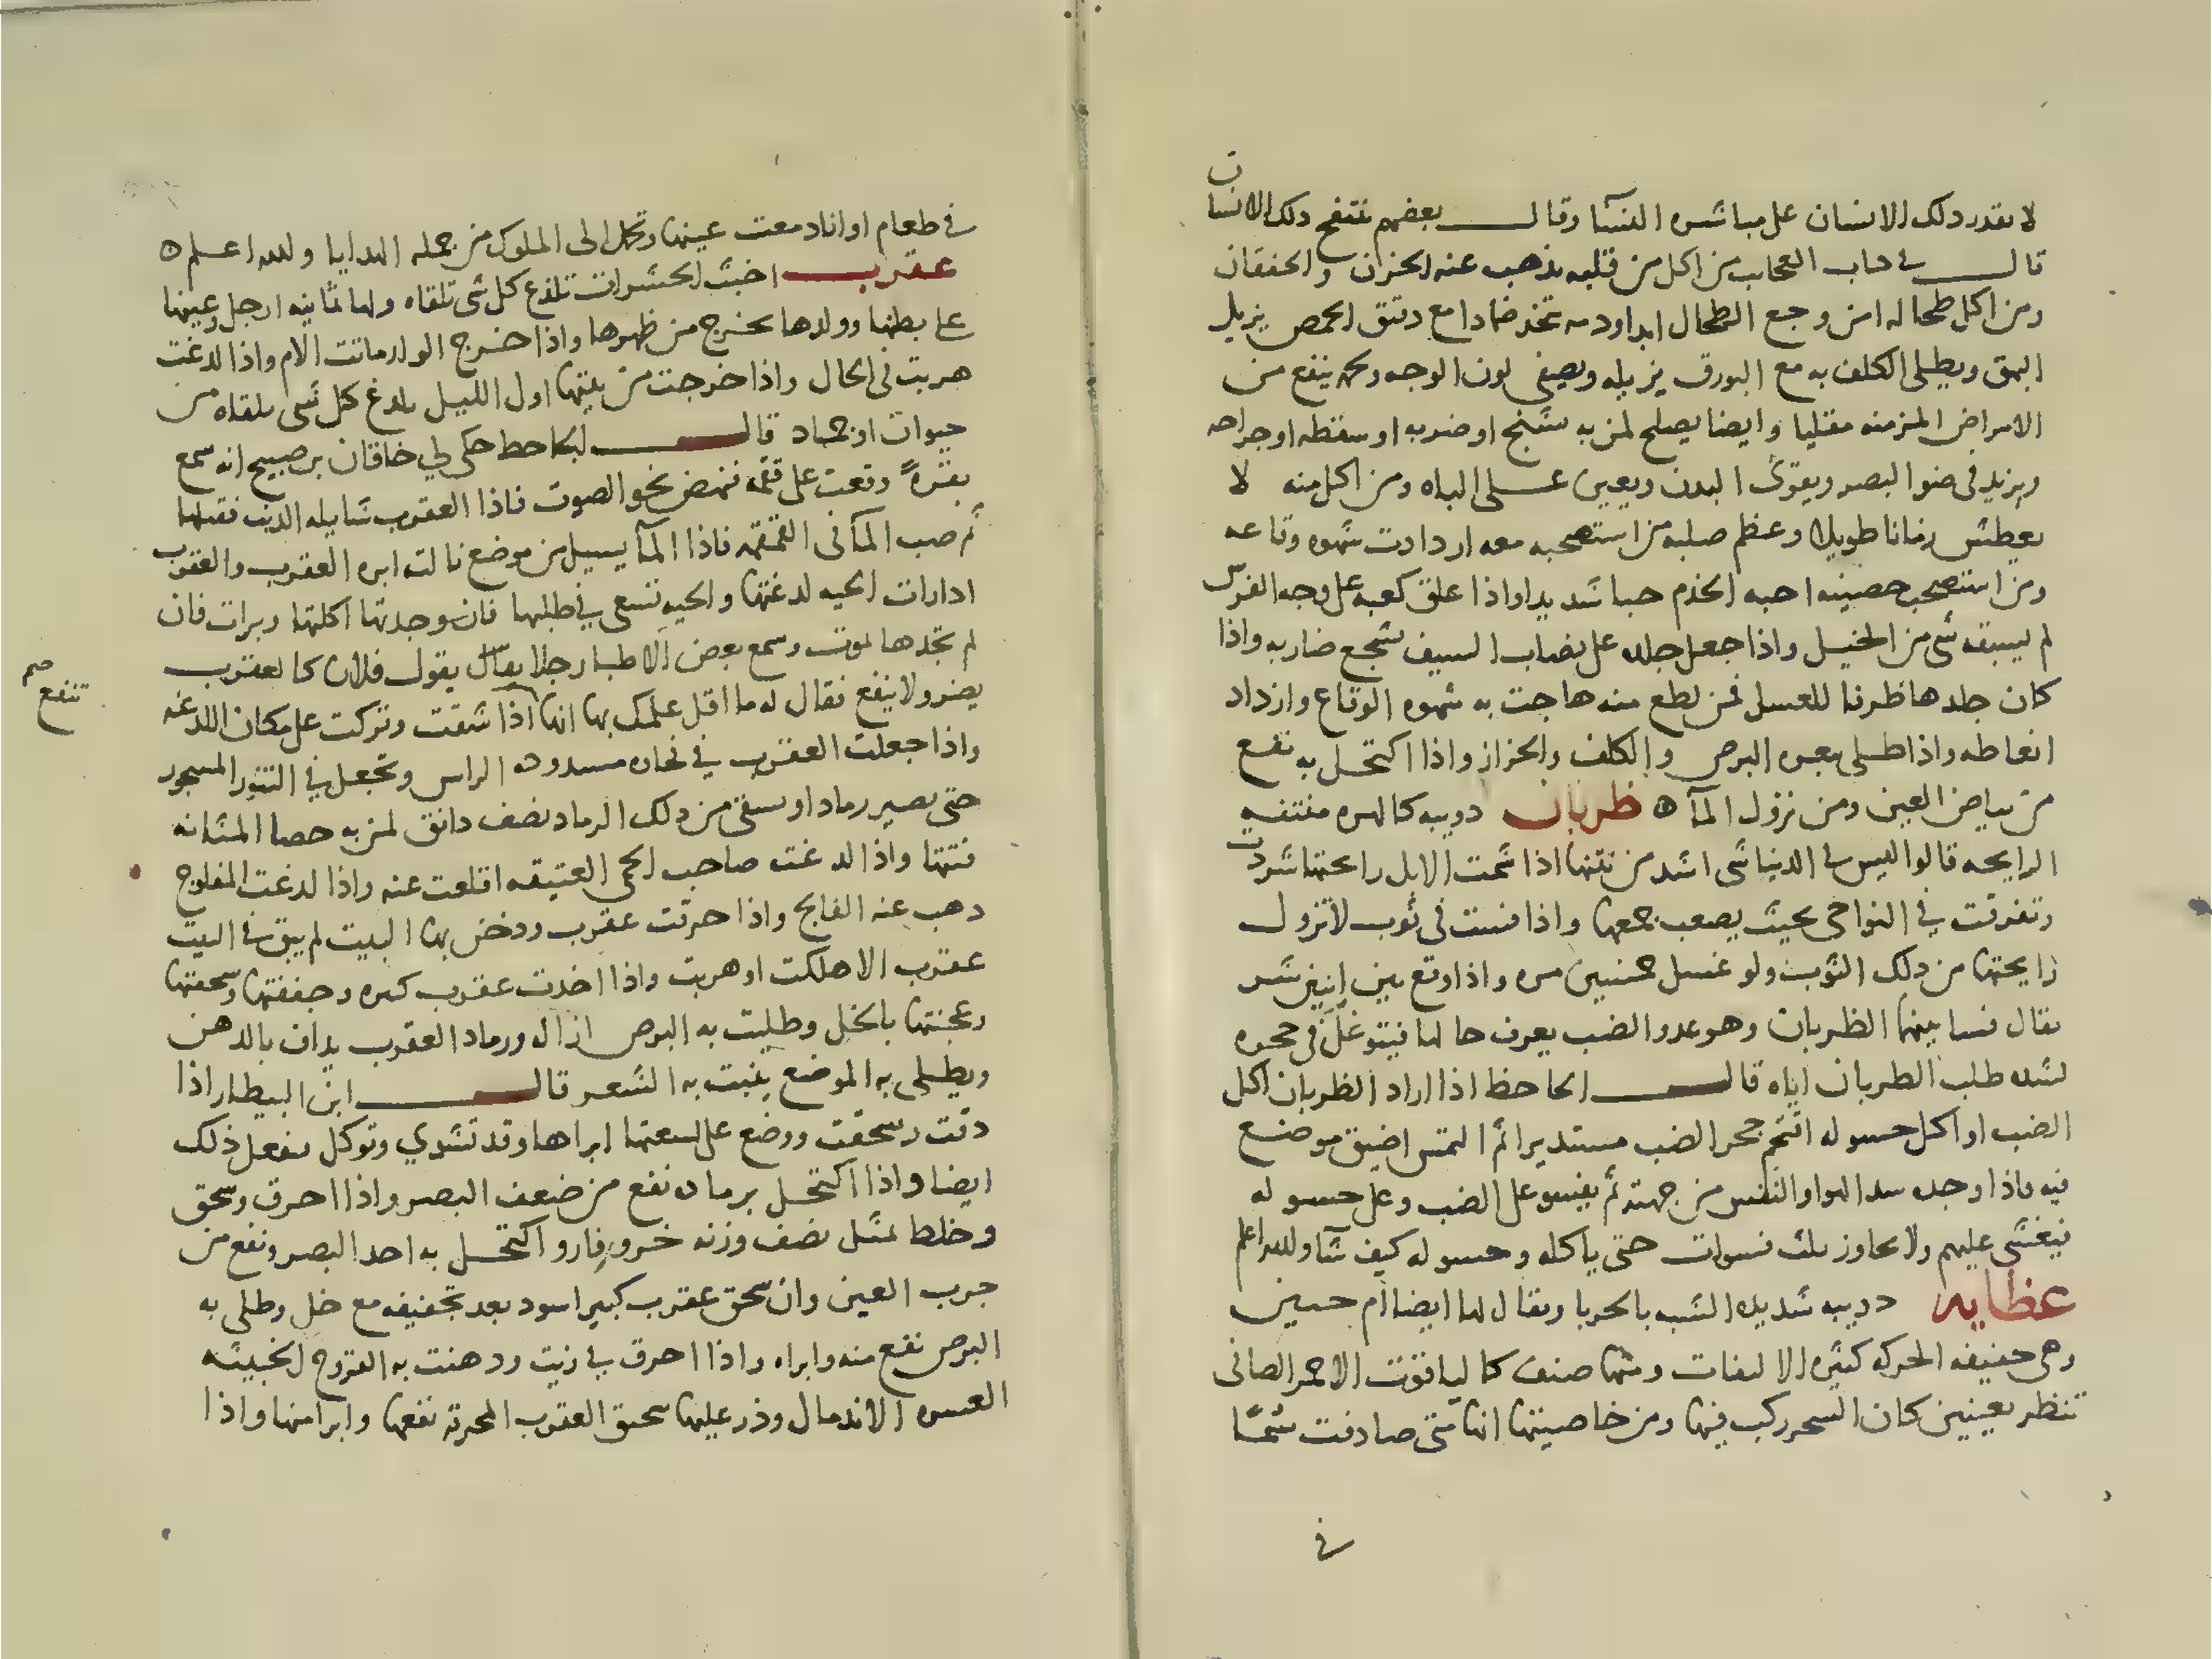 لا يقدر ذلك الانسان على مباشره النسآ وقال بعضهم تنتفخ ذلك الانسان
قال في كتاب العجايب من اكل من قلبه يذهب عنه الحزن والخفقان
ومن اكل طحاله امن وجع الطحال ابدا ودمه تتخذ ضمادا مع دقيق الحمص يزيل
البهق ويطلى الكلف به مع البورق يزيله ويصفى لون الوجه ولحمه ينفع من
الامراض المزمنه مقليا وايضا يصلح لمن به تشنج او ضربه او سقطه او جراحه
ويزيد في ضوا البصر ويقوى البدن ويعين على الباه ومن اكل منه لا
يعطش زمانا طويلا وعظم صلبه من استصحبه معه ازدادت شهوه وقاعه
ومن استصحب خصيته احبه الخدم حبا شديدا واذا علق كعبه على وجه الفرس
لم يسبقه شى من الخيل واذا جعل جلده على نصاب السيف شجع ضاربه واذا
كان جلدها ظرفا للعسل فمن لطع منه هاجت به شهوه الوقاع وازداد
انعاظه واذا طلى ببعره البرص والكلف والحزاز واذا اكتحل به نفع
من بياض العين ومن نزول المآ ه ظربان دويبه كالهره منتنه
الرايحه قالوا ليس في الدنيا شى اشد من نتنها اذا شمت الابل رايحتها شردت
وتفرقت في النواحى بحيث يصعب جمعها واذا فست في ثوب لا تزول
رايحتها من ذلك الثوب ولو غسل خمسين مره واذا وقع بين اثنين شر
يقال فسا بينهما الظربان وهو عدو الضب يعرف حالها فيتوغل في جحره
لشده طلب الظربان اياه قال الجاحظ اذا اراد الظربان اكل
الضب او اكل حسوله اقتحم جحر الضب مستديرا ثم التمس اضيق موضع
فيه فاذا وجده سد الهوا والنفس من جهته ثم يفسو على الضب وعلى حسوله
فيغشى عليهم ولا يجاوز ثلث فسوات حتى ياكله وحسوله كيف شآ والله اعلم
عظايه دويبه شديده الشبه بالحربا ويقال لها ايضا ام حبين
وهى خفيفه الحركه كثيره الالتفات ومنها صنف كالياقوت الاحمر الصافى
تنظر بعينين كان السحر ركب فيها ومن خاصيتها انها متى صادفت شيًا
في
في طعام او انا دمعت عينها وتحمل الى الملوك من جمله الهدايا والله اعلم ه
عقرب اخبث الحشرات تلدغ كل شى تلقاه ولها ثمانيه ارجل وعينها
على بطنها وولدها يخرج من ظهرها واذا خرج الولد ماتت الام واذا لدغت
هربت في الحال واذا خرجت من بيتها اول الليل يلدغ كل شى يلقاه من
حيوان او جماد قال الجاحظ حكى لي خاقان بن صبيح انه سمع
نقرةً وقعت على قمقمه فنهض نحو الصوت فاذا العقرب شايله الذنب فقتلها
ثم صب المآ فى القمقمه فاذا المآ يسيل من موضع نالته ابره العقرب والعقرب
اذا رات الحيه لدغتها والحيه تسعى في طلبها فان وجدتها اكلتها وبرات فان
لم تجدها تموت وسمع بعض الاطبا رجلا يقال يقول فلان كالعقرب
يضر ولا ينفع فقال له ما اقل علمك بها انها اذا شقت وتركت على مكان اللدغه
تنفع صح
واذا جعلت العقرب في فخاره مسدوده الراس وتجعل في التنور المسجور
حتى يصير رمادا ويسقى من ذلك الرماد نصف دانق لمن به حصا المثانه
فتتها واذا لدغت صاحب الحمى العتيقه اقلعت عنه واذا لدغت المفلوج
ذهب عنه الفالج واذا حرقت عقرب ودخن بها البيت لم يبق في البيت
عقرب الا هلكت او هربت واذا اخذت عقرب كبيره وجففتها وسحقتها
وعجنتها بالخل وطليت به البرص ازال ورماد العقرب يداف بالدهن
ويطلى به الموضع ينبت به الشعر قال ابن البيطار اذا
دقت وسحقت ووضع على لسعتها ابراها وقد تشوي وتوكل يفعل ذلك
ايضا واذا اكتحل برماده نفع من ضعف البصر واذا احرق وسحق
وخلط بمثل نصف وزنه خرو فار واكتحل به احد البصر ونفع من
جرب العين وان سحق عقرب كبير اسود بعد تجفيفه مع خل وطلى به
البرص نفع منه وابراه واذا احرق في زيت ودهنت به القروح الخبيثه
العسره الاندمال وذر عليها سحق العقرب المحرقه نفعها وابرامنها واذا